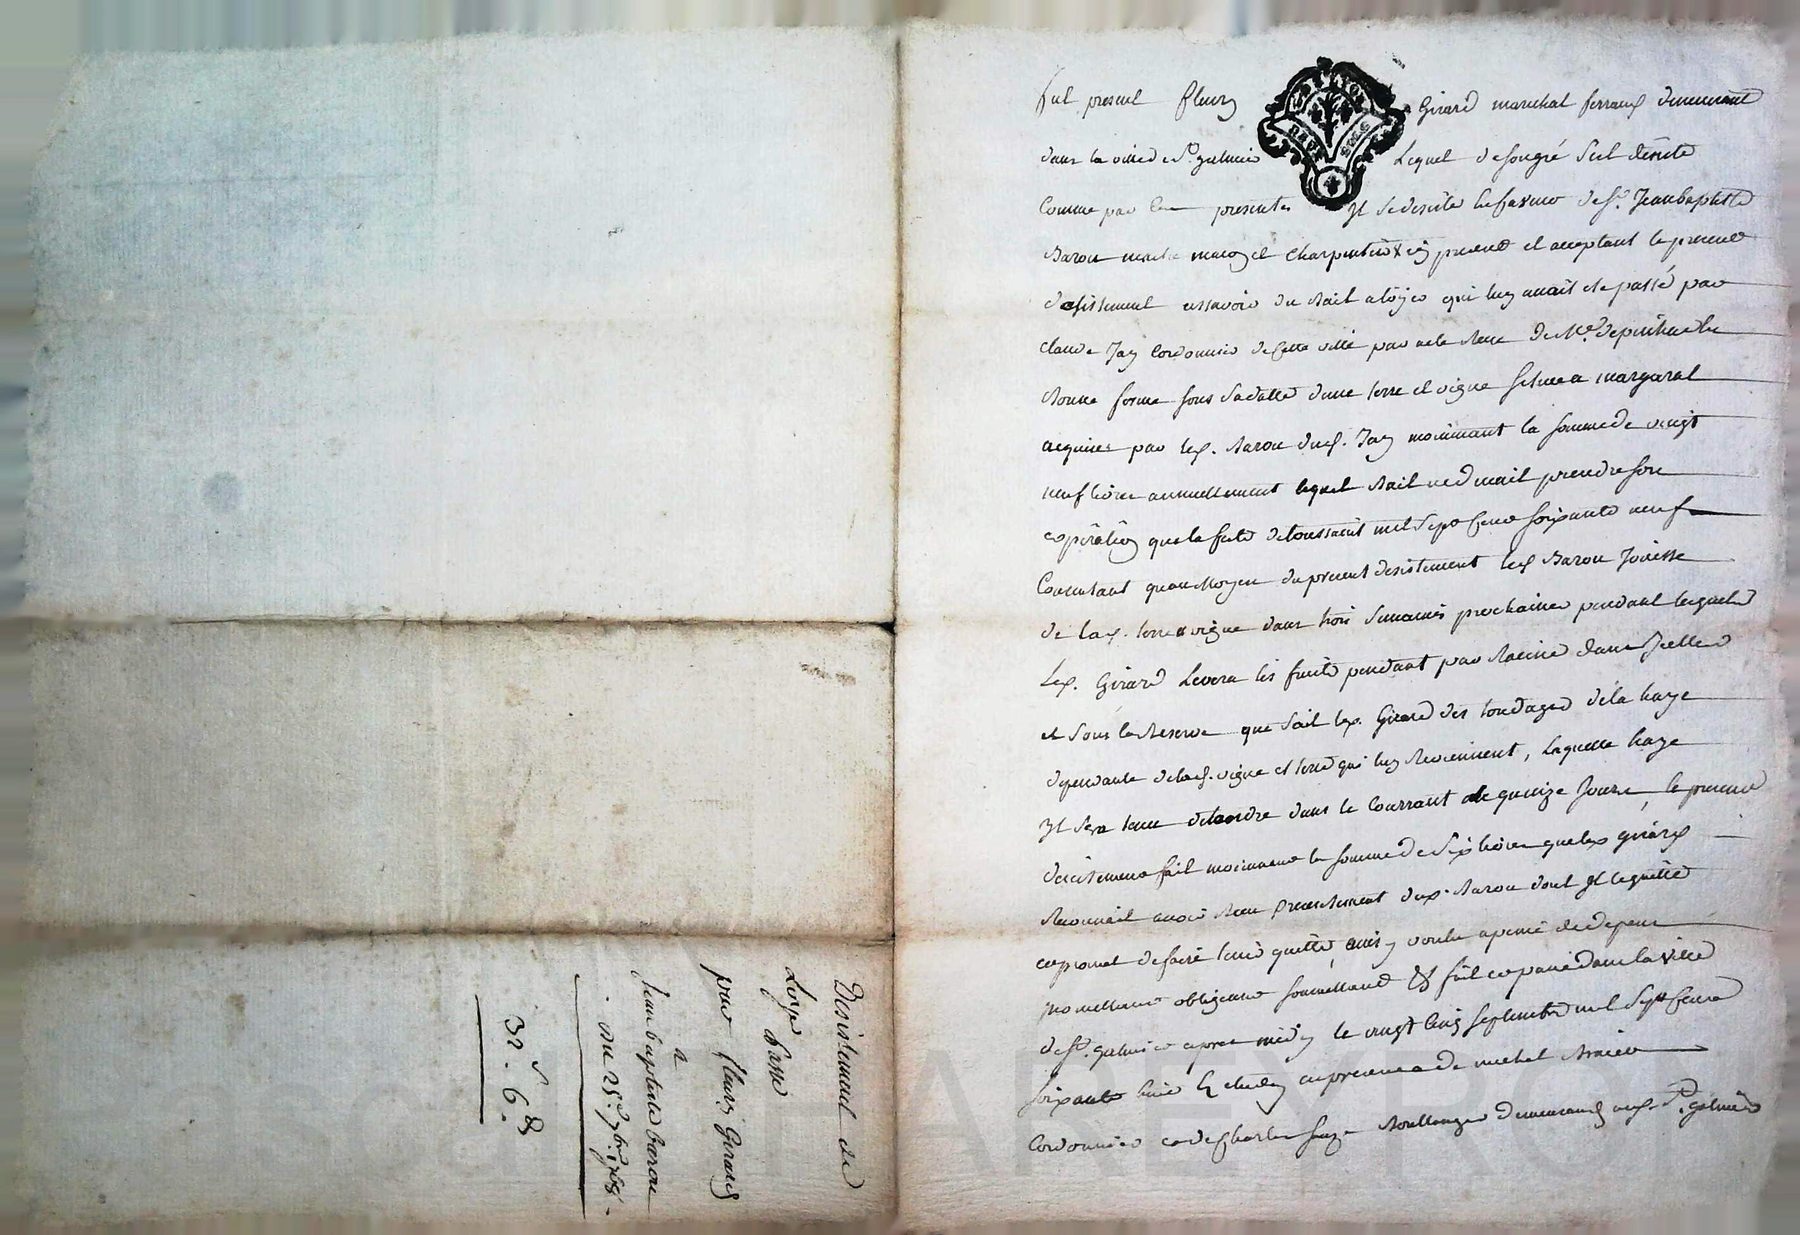 fut present fleury Girard marechal ferrant demeurant
dans la ville de St. galmier Lequel de son gré s'est desisté
Comme par les presentes Il se desiste en faveur de Sr. Jean baptiste
Baron maitre maçon et charpentier icy present et acceptant le present
desistement assavoir du Bail a loyer qui luy auait ete passé par
claude Jay Cordonnier de cette ville par acte Receu de Me.
Bonne forme sous sa datte d'une terre et vigne scituée a margaral
acquises par led. Baron dud. Jay moiennant la somme de vingt
neuf livres annuellement lequel Bail ne devait prendre son
expiration qu'a la fete de toussaint mil sept cent soixante neuf
Consentant qu'au Moyen du present desistement led. Baron Jouisse
de lad. terre et vigne dans trois semaines prochaines pendant lesquelles
Led. Girard Levera les fruits pendant par Racine dans Icelles
et sous la Reserve que fait led. Girard des tondages de la haye
dependante de lad. vigne et terre qui luy Reviennent, laquelle haye
Il sera tenu de tondre dans le Courrant de quinze Jours, le present
desistement fait moiennant la somme de six livres que led. girard
Reconnait avoir Receu presentement dud. Baron dont Il le quitte
et promet de faire tenir quitte, ainsy voulu a peine de depens
promettant obligeant soumettant &c fait et passé dans la ville
de St. galmier apres midy le vingt cinq septembre mil sept cent
soixante huit en presence de michel
Cordonnier et de Charles Boullanger demeurants aud. St. galmier
Desistement de
Loyer passé
par fleury Girard
a
Jean baptiste baron
du 25e. 7bre. 1768.
3#. 6.